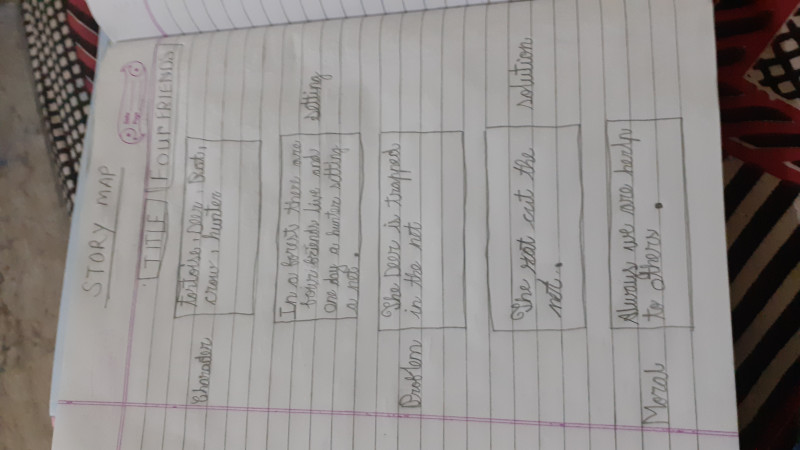 STORY MAP
TITLE FOUR FRIENDS
Character
Tortoise, Deer,
crow, hunter
setting
In a forest there are
four friends live and
one day a hunter setting
a net.
Problem
The Deer is trapped
in the net
solution
The rat cut the
net.
Moral
Always we are herlp
to others.